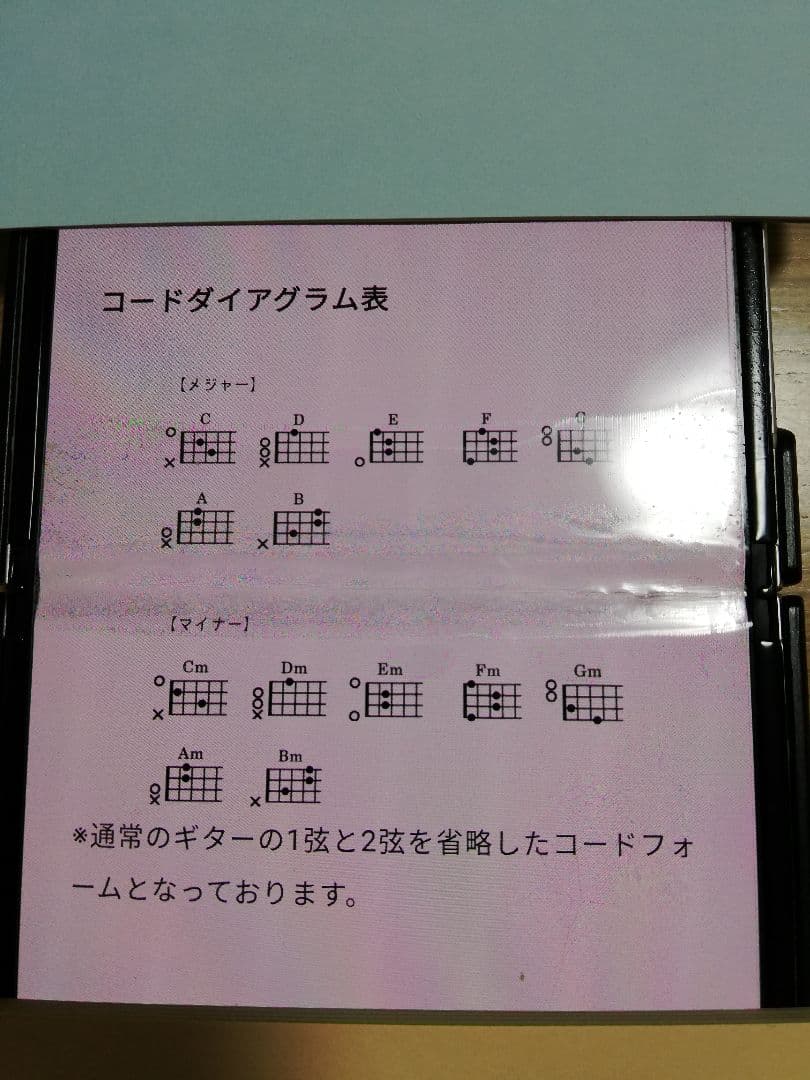 コードダイアグラム表
【メジャー】
C D E F G
A B
【マイナー】
Cm Dm Em Fm Gm
Am Bm
※通常のギターの1弦と2弦を省略したコードフォ
ームとなっております。